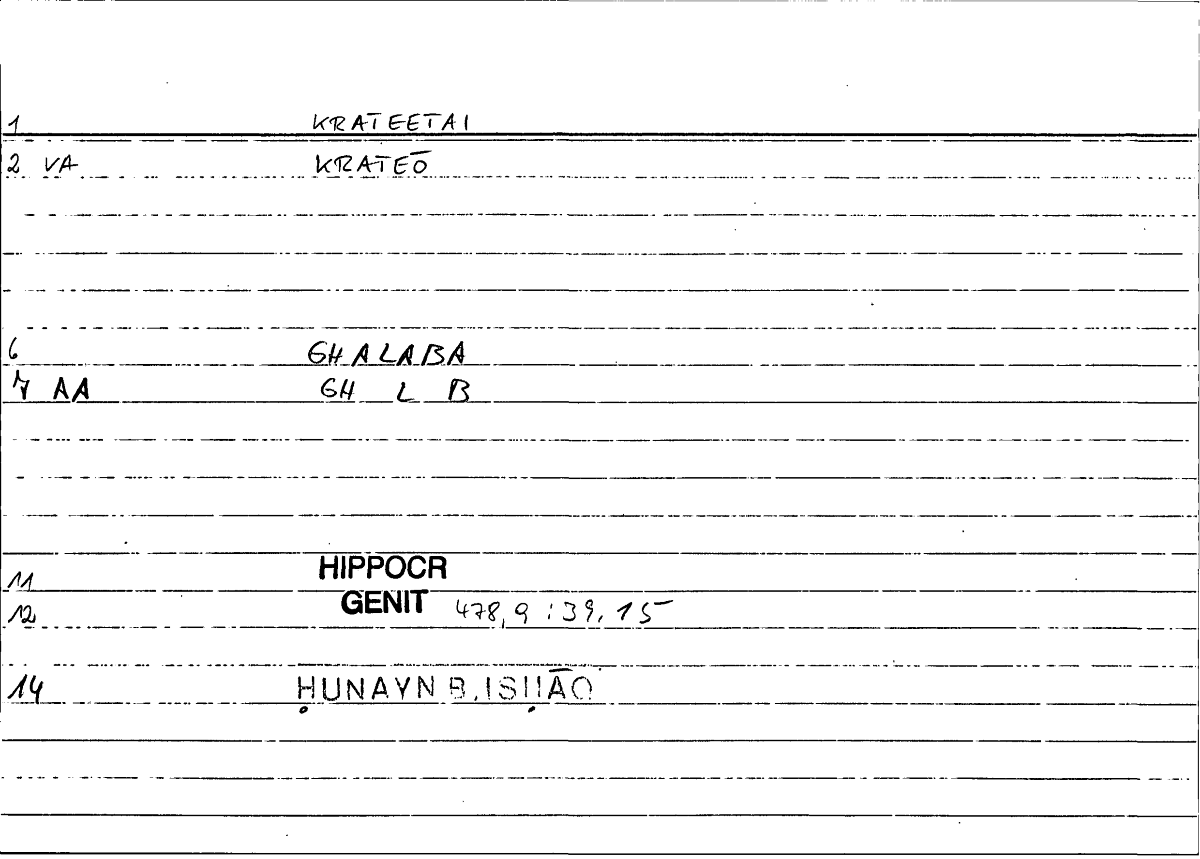 1 KRATEETAI
2 VA KRATEŌ
6 GHALABA
7 AA GH L B
11 HIPPOCR
12 GENIT 478,9 : 39,15
14 ḤUNAYN B. ISḤĀQ